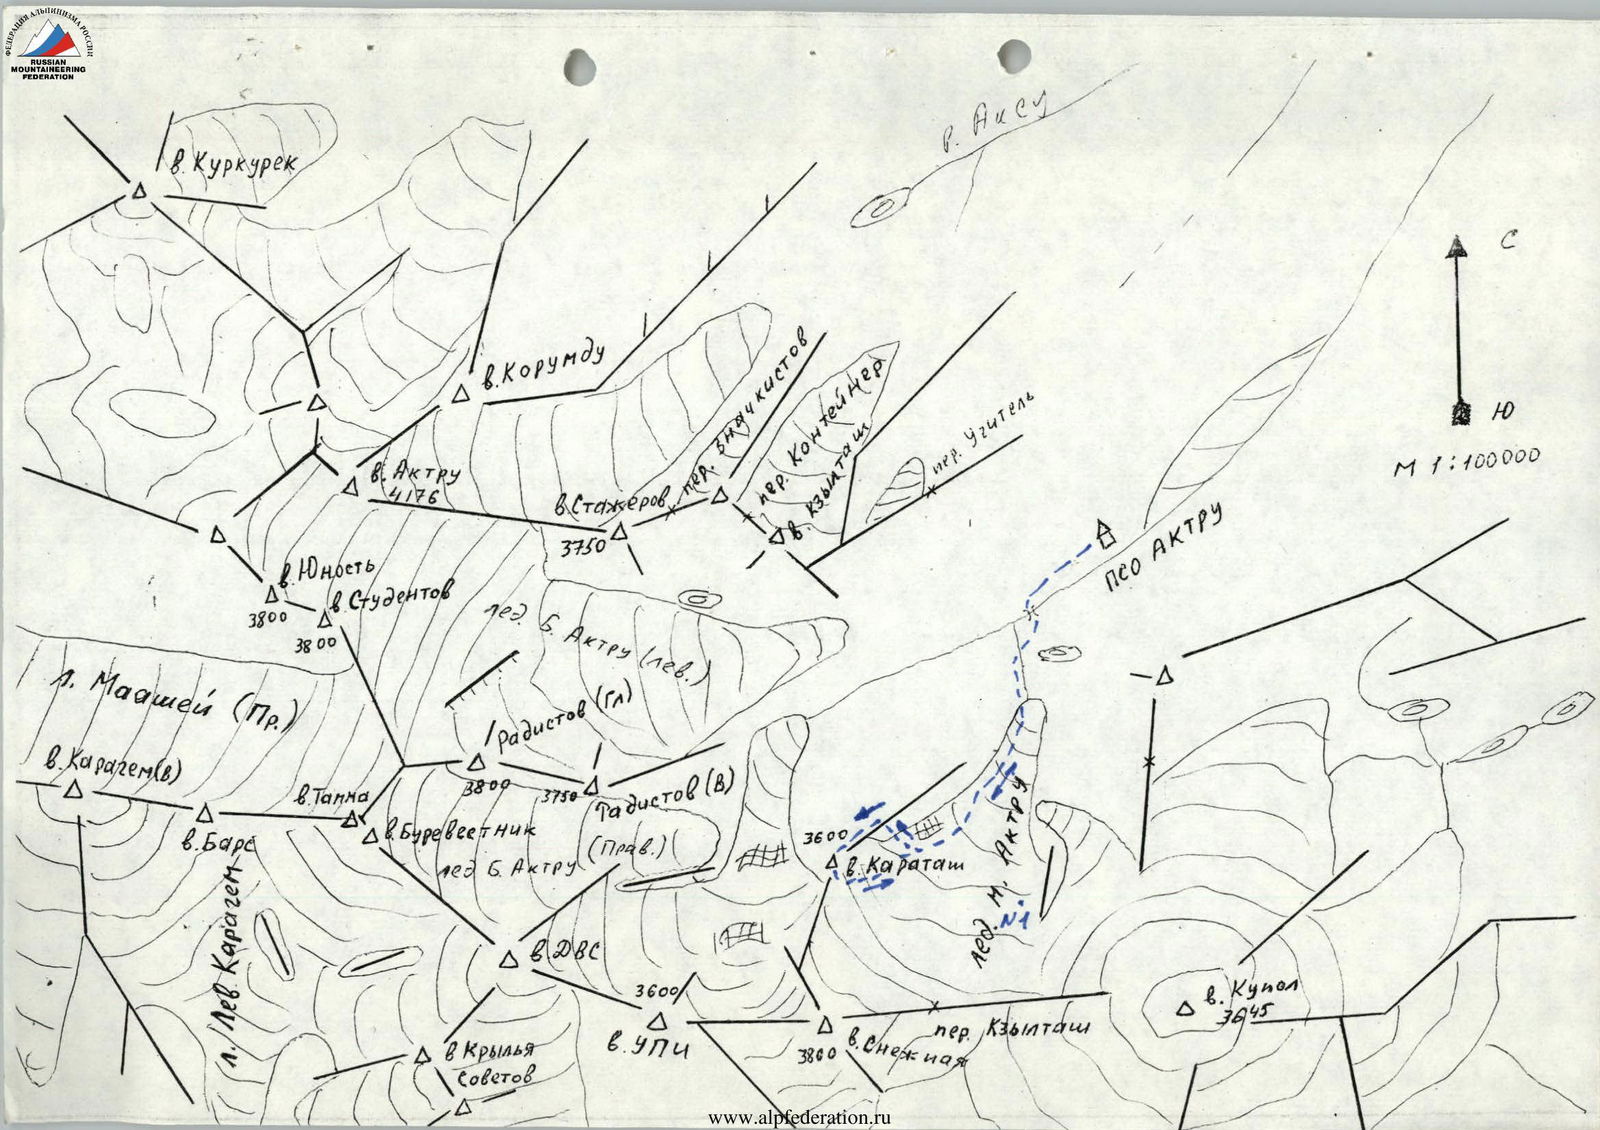 ФЕДЕРАЦИЯ АЛЬПИНИЗМА РОССИИ
RUSSIAN
MOUNTAINEERING
FEDERATION
р. Аксу
в. Куркурек
С
Ю
М 1:100000
в. Корумду
пер. Значкистов
пер. Контейнер
в. Кзылташ
пер. Учитель
в. Актру
4176
в Стажеров
3750
ПСО АКТРУ
в. Юность
3800
в. Студентов
3800
лед. Б. Актру (лев.)
л. Маашей (Пр.)
Радистов (Гл)
3800
3750
Радистов (В)
в. Карагем(в)
в. Барс
в. Тамма
в. Буревестник
лед Б. Актру (Прав.)
3600
в. Караташ
лед. М. Актру
N1
л. Лев Карагем
в ДВС
3600
в. УПИ
в. Снежная
3800
пер. Кзылташ
в. Купол
3645
в Крылья
Советов
www.alpfederation.ru